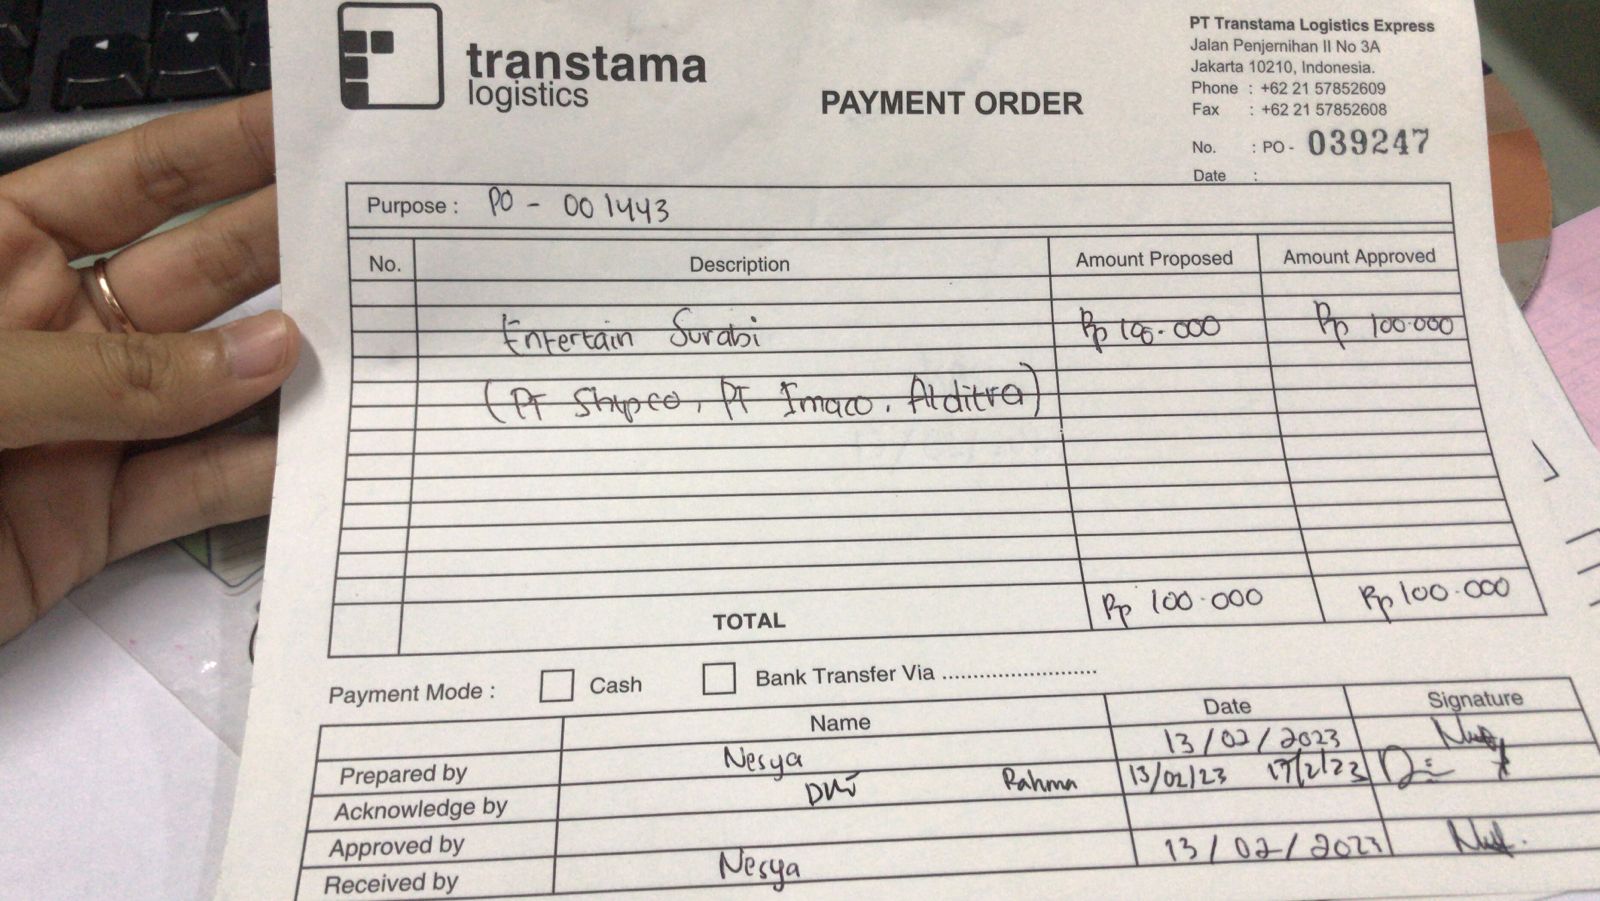 transtama
logistics
PAYMENT ORDER
PT Transtama Logistics Express
Jalan Penjernihan II No 3A
Jakarta 10210, Indonesia.
Phone : +62 21 57852609
Fax : +62 21 57852608
No. : PO - 039247
Date :
Purpose : PO - 001443
No. Description Amount Proposed Amount Approved
Entertain Surabi Rp 100.000 Rp 100.000
(PT Shypco, PT Imaco, Alditra)
TOTAL Rp 100.000 Rp 100.000
Payment Mode : Cash Bank Transfer Via ..........................
Name Date Signature
Prepared by Nesya 13/02/2023
Acknowledge by Rahma 13/02/23 17/2/23
Approved by
Received by Nesya 13/02/2023